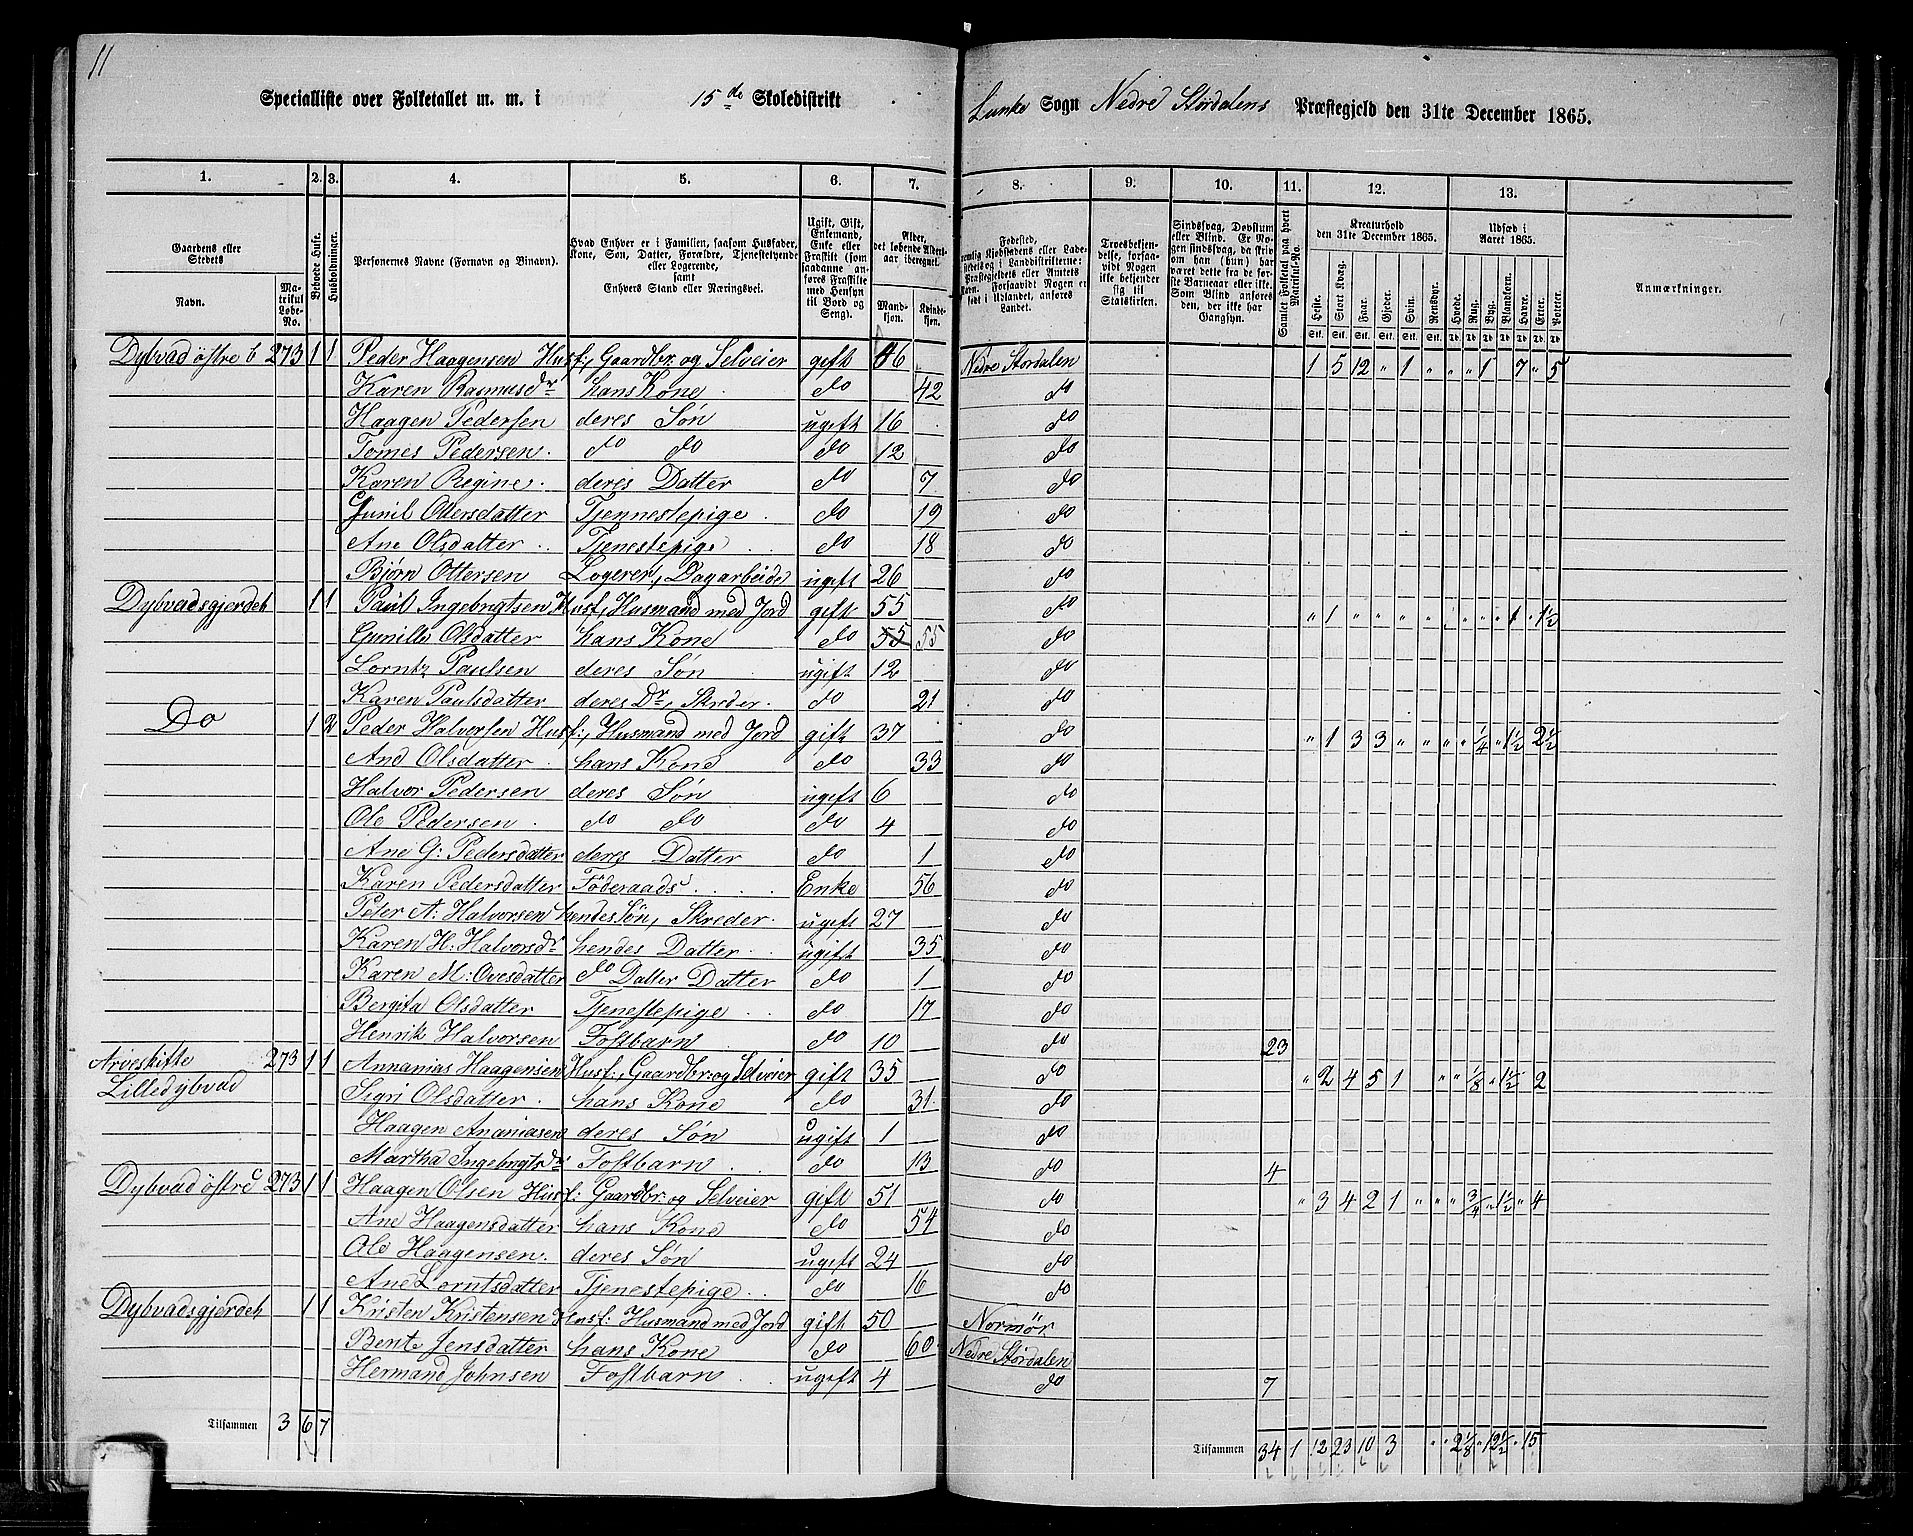 11
Specialliste over Folketallet m. m. i 15de Skoledistrikt Lunke Sogn Nedre Stördalens Præstegjeld den 31te December 1865.
1. 2. 3. 4. 5. 6. 7. 8. 9. 10. 11. 12. 13.
Gaardens eller Stedets Navn. Matrikul Løbe-No. Beboede Huse. Husholdninger. Personernes Navne (Fornavn og Binavn). Hvad Enhver er i Familien, saasom Husfader, Kone, Søn, Datter, Forældre, Tjenestetyende eller Logerende, samt Enhvers Stand eller Næringsvei. Ugift, Gift, Enkemand, Enke eller Fraskilt (som saadanne anføres Fraskilte med Hensyn til Bord og Seng). Alder, det løbende Alders-aar iberegnet. Mandkjøn. Kvindekjøn.
Fødested, Trosbekjendelse, forsaavidt Nogen ikke bekjender sig til Statskirken. Sindssvag, Døvstum eller Blind. Samlet Folketal paa hvert Matrikul-No. Kreaturhold den 31te December 1865. Heste. Stort Kvæg. Faar. Gjeder. Svin. Rensdyr. Udsæd i Aaret 1865. Hvede. Rug. Byg. Blandkorn. Havre. Erter. Poteter. Anmærkninger.
Dybvad östre b 273 1 1 Peder Haagensen Husf., Gaardbr. og Selveier gift 46 Nedre Stördalen 1 5 12 " 1 " " " 1 7 " 5
Karen Rasmusdr hans Kone do 42 do
Haagen Pedersen deres Søn ugift 16 do
Tomes Pedersen do do do 12 do
Karen Regine deres Datter do 7 do
Gunil Olersdatter Tjennestepige do 19 do
Ane Olsdatter Tjenestepige do 18 do
Bjørn Ottersen Logerer, Dagarbeide ugift 26 do
Dybvadsgjerdet 1 1 Paul Ingebrigtsen Husf, Husmand med Jord gift 55 do " 1 " " " " " " " 1 " 1½
Gunille Olsdatter hans Kone do 55 55 do
Lorntz Paulsen deres Søn ugift 12 do
Karen Paulsdatter deres Dr, Skreder do 21 do
Do 1 2 Peder Halvorsen Husf., Husmand med Jord gift 37 do " 1 3 3 " " " " ¼ " 1½ " 2½
Ane Olsdatter hans Kone do 33 do
Halvor Pedersen deres Søn ugift 6 do
Ole Pedersen do do do 4 do
Ane G. Pedersdatter deres Datter do 1 do
Karen Pedersdatter Föderaads Enke 56 do
Peter A: Halvorsen hendes Søn, Skreder ugift 27 do
Karen H: Halvorsdr hendes Datter ugift 35 do
Karen M: Ovesdatter do Datter Datter do 1 do
Bergita Olsdatter Tjenestepige do 17 do
Henrik Halvorsen Fostbarn do 10 do 23
Arveskifte Lilledybvad 273 1 1 Annanias Haagensen Husf., Gaardbr. og Selveier gift 35 do " 2 4 5 1 " " ⅛ " 1½ " 2
Sigri Olsdatter hans Kone do 31 do
Haagen Ananiasen deres Søn ugift 1 do
Martha Ingebrigtsdr Fostbarn do 13 do 4
Dybvad östre c 273 1 1 Haagen Olsen Husf: Gaardbr. og Selveier gift 51 do " 3 4 2 1 " " " ¾ " 1½ " 4
Ane Haagensdatter hans Kone do 54 do
Ole Haagensen deres Søn ugift 24 do
Ane Lorntsdatter Tjenestepige do 16 do
Dybvadsgjerdet 1 1 Kristen Kristensen Husf: Husmand med Jord gift 50 Normör
Bent Jensdatter hans Kone do 60 Nedre Stördalen
Hermand Johnsen Fostbarn ugift 4 do 7
Tilsammen 3 6 7 Tilsammen 34 1 12 23 10 3 " " 2⅛ " 12½ " 15